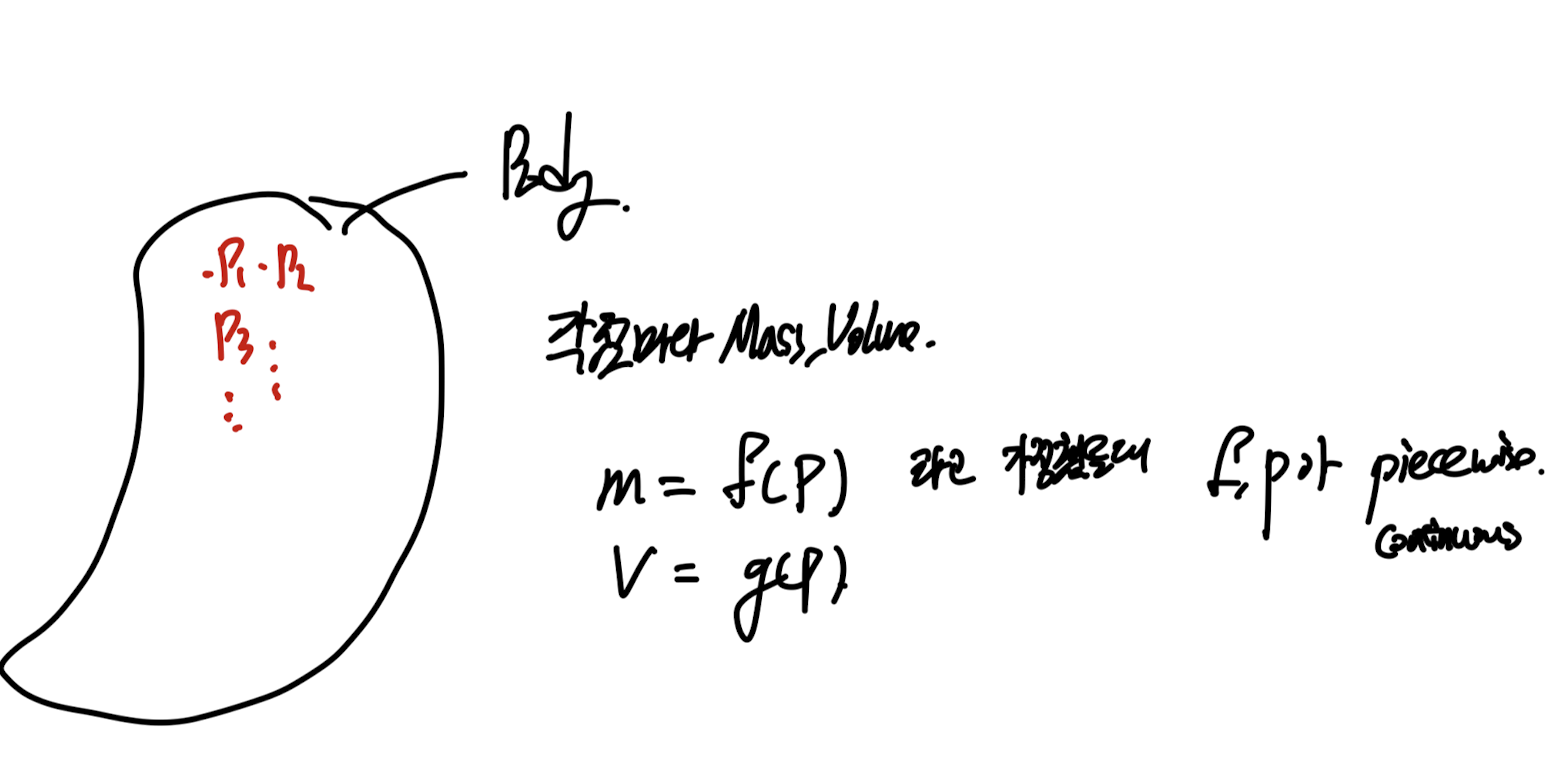 Body.
·P₁ ·P₂
P₃
각점마다 Mass, Volume.
m = f(P) 라고 가정했을때 f, p가 piecewise.
continuous
V = g(P)